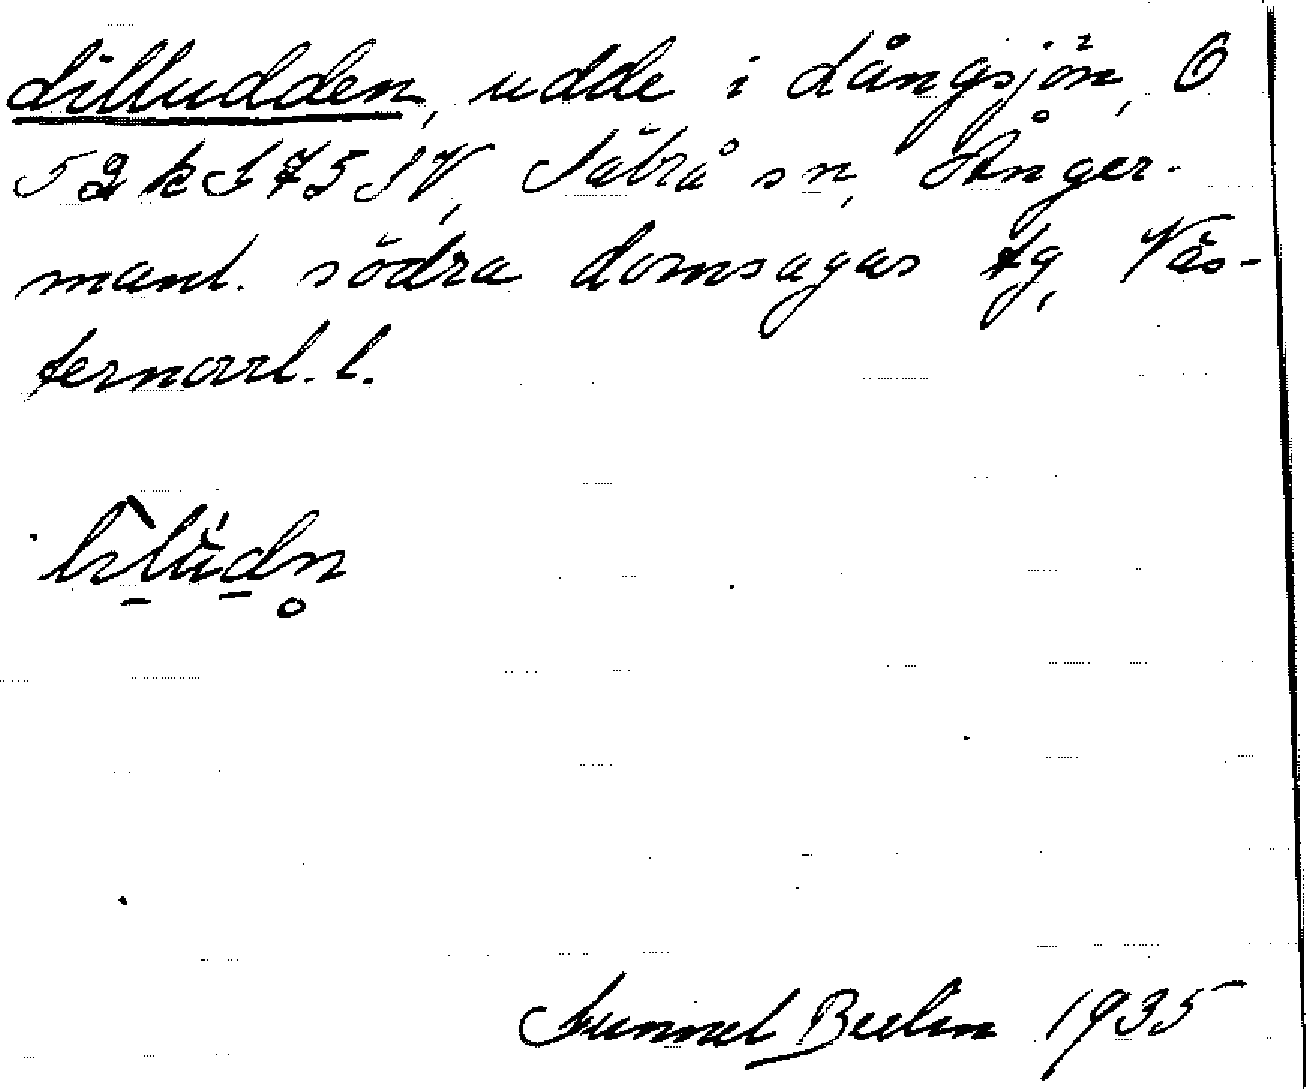 Lilludden, udde i Långsjön, Ö
52 k I 75 IV, Säbrå sn, Ånger-
manl. södra domsagas tg, Väs-
ternorrl. l.
Gunnel Beelin 1935